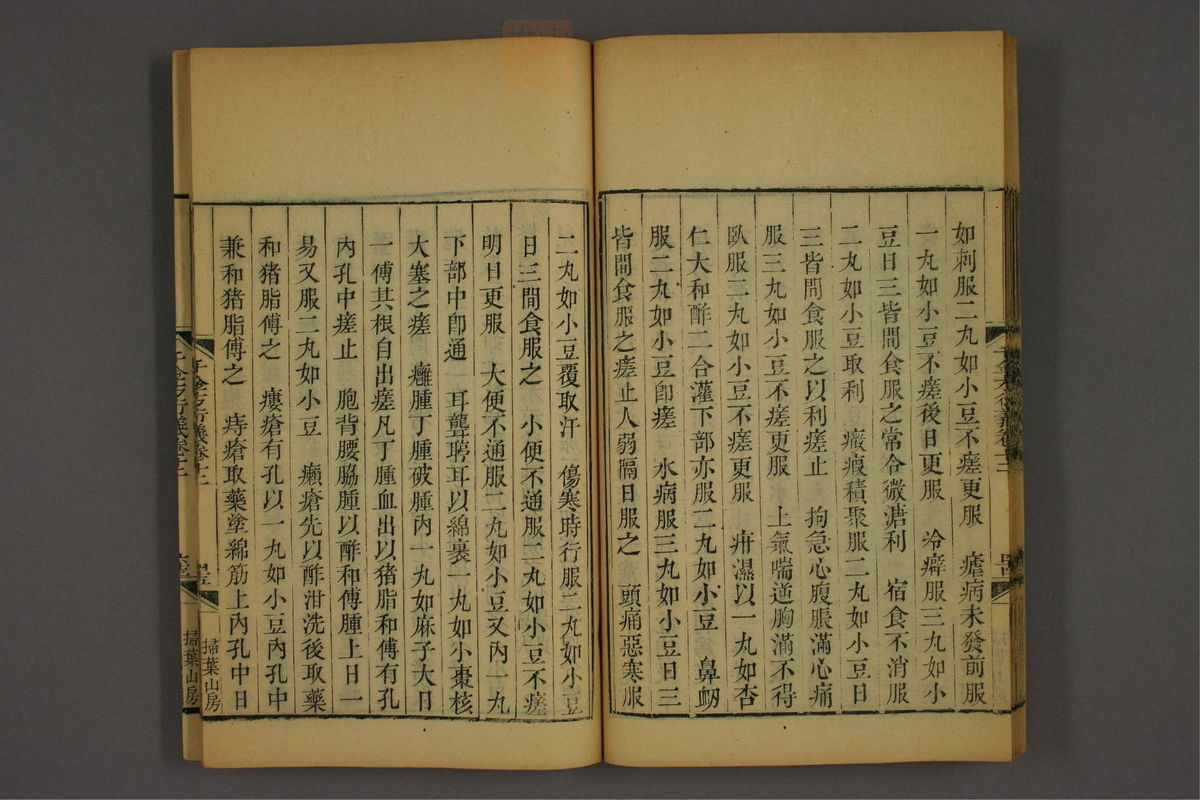 如刺服二丸如小豆不瘥更服　瘧病未發前服
一丸如小豆不瘥後日更服　冷癖服三丸如小
豆日三皆間食服之常令微溏利　宿食不消服
二丸如小豆取利　癥瘕積聚服二丸如小豆日
三皆間食服之以利瘥止　拘急心腹脹滿心痛
服三丸如小豆不瘥更服　上氣喘逆胸滿不得
臥服二丸如小豆不瘥更服　疳濕以一丸如杏
仁大和酢二合灌下部亦服二丸如小豆　鼻衂
服二丸如小豆卽瘥　水病服三丸如小豆日三
皆間食服之瘥止人弱隔日服之　頭痛惡寒服
二丸如小豆覆取汗　傷寒時行服二丸如小豆
日三間食服之　小便不通服二丸如小豆不瘥
明日更服　大便不通服二丸如小豆又內一丸
下部中卽通　耳聾聤耳以綿裹一丸如小棗核
大塞之瘥　癰腫丁腫破腫內一丸如麻子大日
一傅其根自出瘥凡丁腫血出以猪脂和傅有孔
內孔中瘥止　胞背腰脇腫以酢和傅腫上日一
易又服二丸如小豆　癩瘡先以酢泔洗後取藥
和猪脂傅之　瘻瘡有孔以一丸如小豆內孔中
兼和猪脂傅之　痔瘡取藥塗綿筋上內孔中日
千金方衍義卷十二
掃葉山房
千金方衍義卷十二
掃葉山房